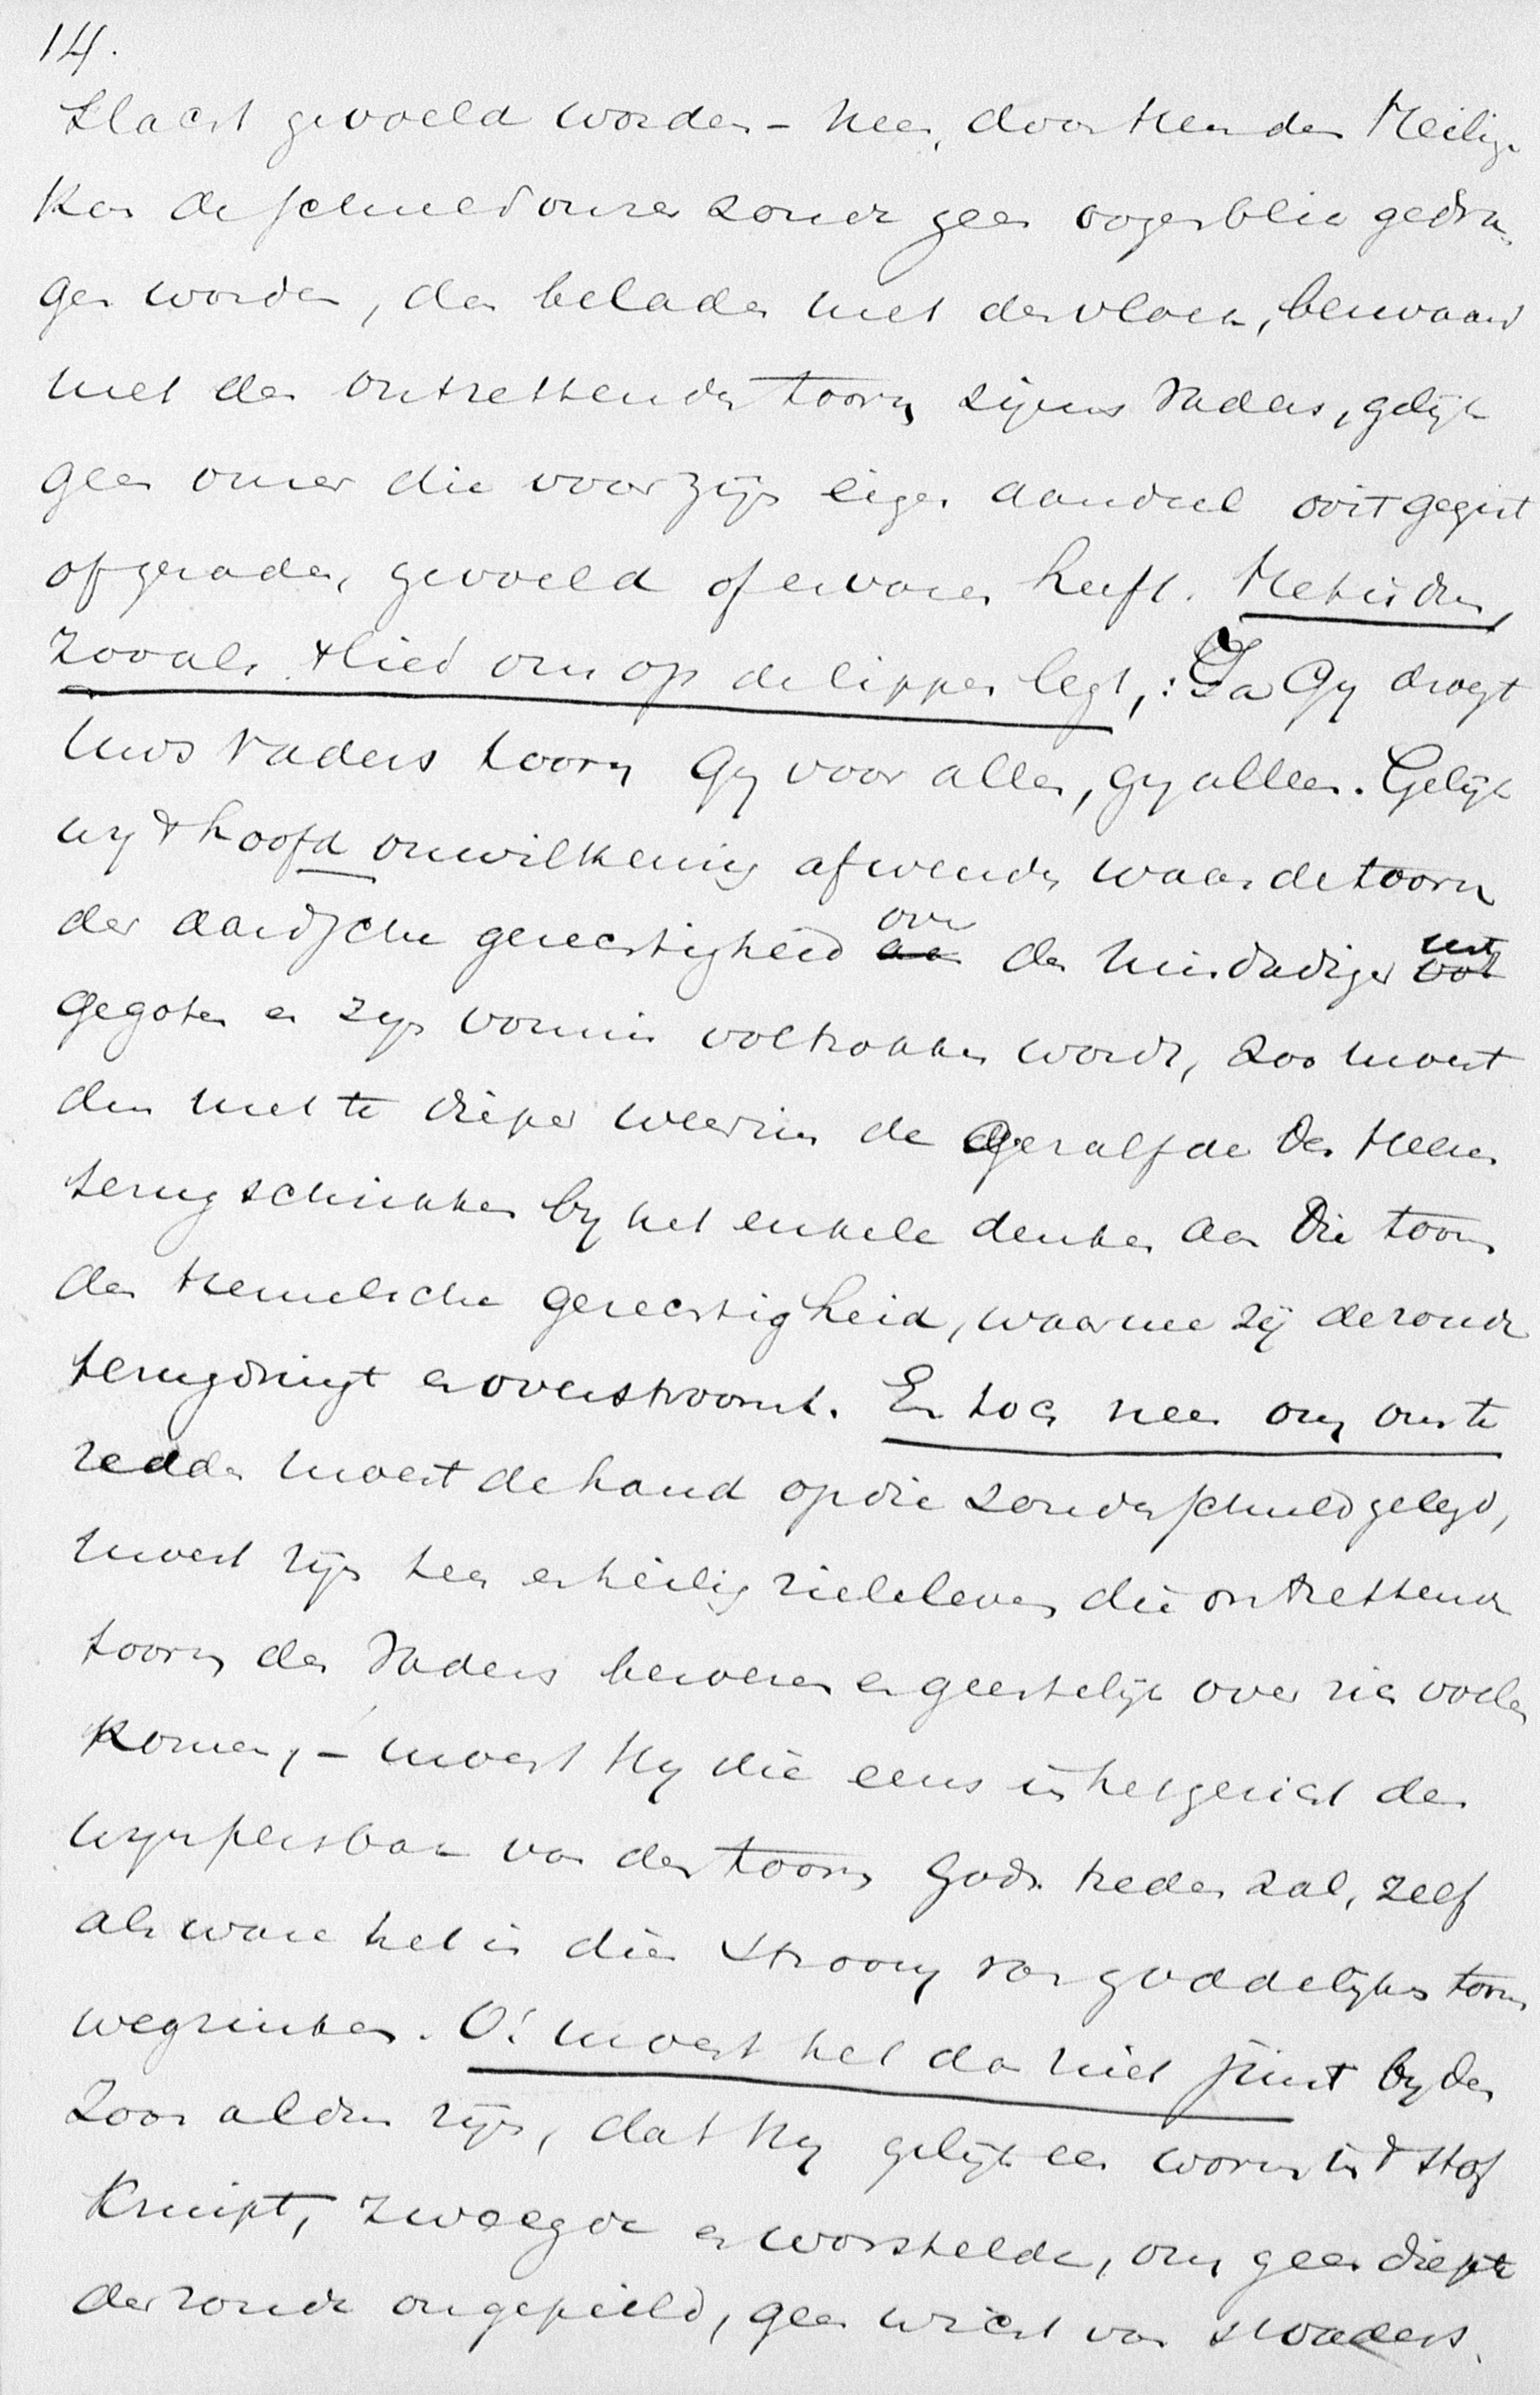 14.
slacht gevoeld worden – neen, door Hem den Heilige
kon de schuld onzer zonde geen oogenblik gedra-
gen worden, dan beladen met den vloek, bezwaard
met den ontzettenden toorn zijns Vaders, gelijk
geen onzer die voor zijn eigen aandeel ooit gegist
of geraden, gevoeld of ervaren heeft. Het is dus,
zooals 't lied ons op de lippen legt,: Ja Gy droegt
Uws Vaders toorn Gy voor allen, gy alleen. Gelijk
wy 't hoofd onwillekeurig afwenden waar de toorn
der aardsche gerechtigheid over aan den misdadiger uit
gegoten en zyn vonnis voltrokken wordt, zoo moest
dan met te dieper weerzin de Gezalfde des Heeren
terugschrikken by het enkele denken aan die toorn
der Hemelsche gerechtigheid, waarmee zij de zonde
terugdringt en overstroomt. En toch neen om ons te
redden moest de hand op die zondeschuld gelegd,
moest zijn teer en heilig zieleleven die ontzettende
toorn des Vaders bezweren en geestelijk over zich voelen
komen, – moest Hy die eens in het gericht den
wynpersbak van den toorn Gods treden zal, zelf
als ware het in dien stroom van goddelijken toorn
wegzinken. O! moest het dan niet juist by den
Zoon aldus zijn, dat Hy gelijk een worm in 't stof
kruipt, zwoegde en worstelde, om geen diepte
der zonde ongepeild, geen wicht van 's Vaders